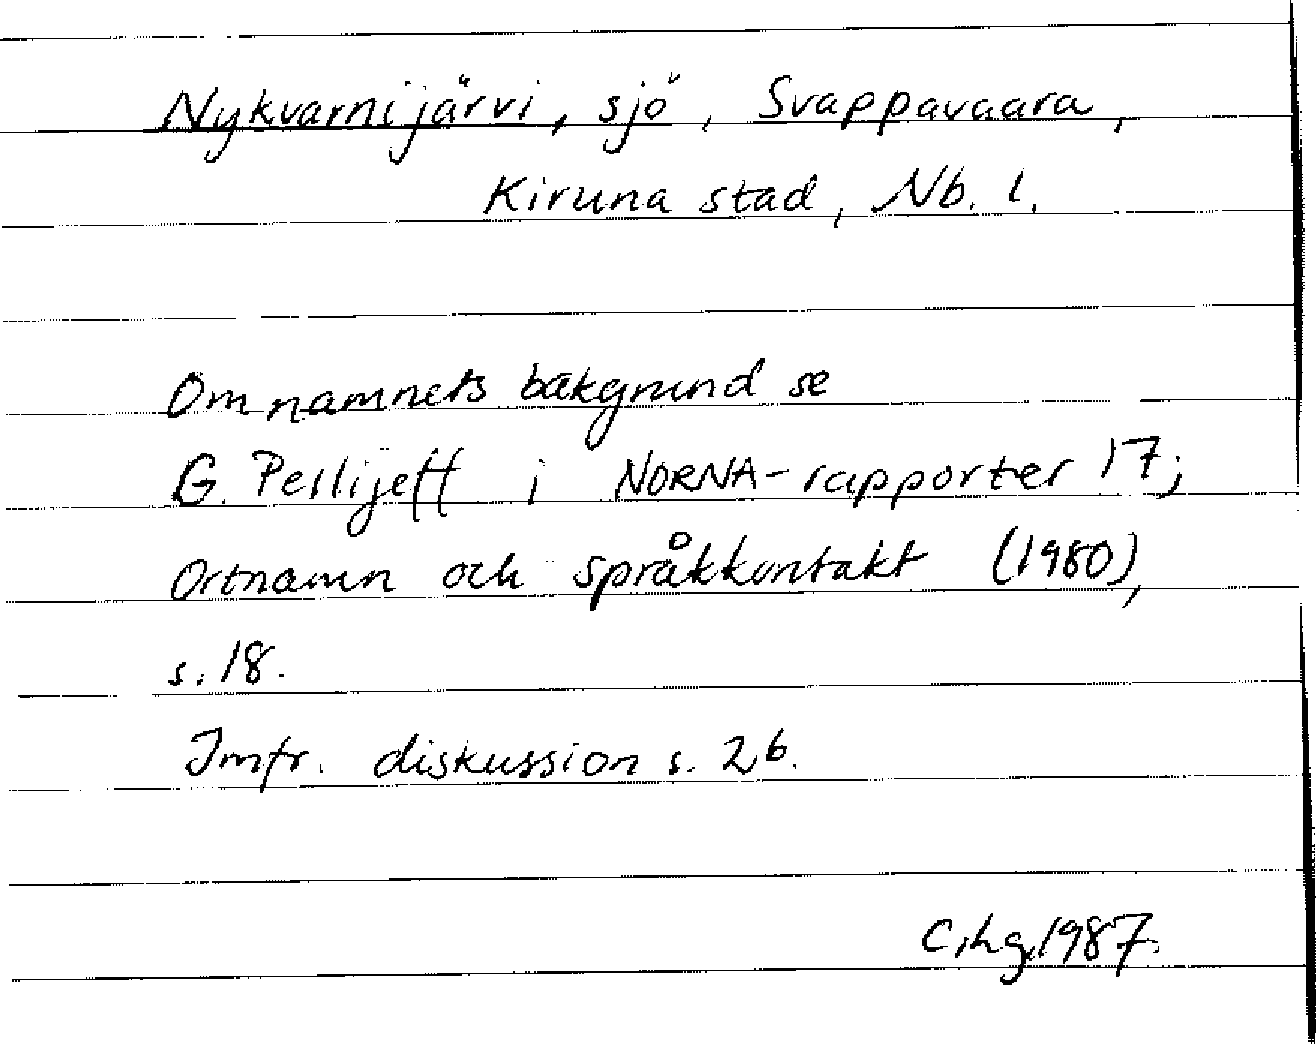 Nykvarnijärvi, sjö, Svappavaara,
Kiruna stad, Nb. l.
Om namnets bakgrund se
G. Pellijeff i NORNA-rapporter 17;
Ortnamn och språkkontakt (1980),
s. 18.
Jmfr. diskussion s. 26.
1987.